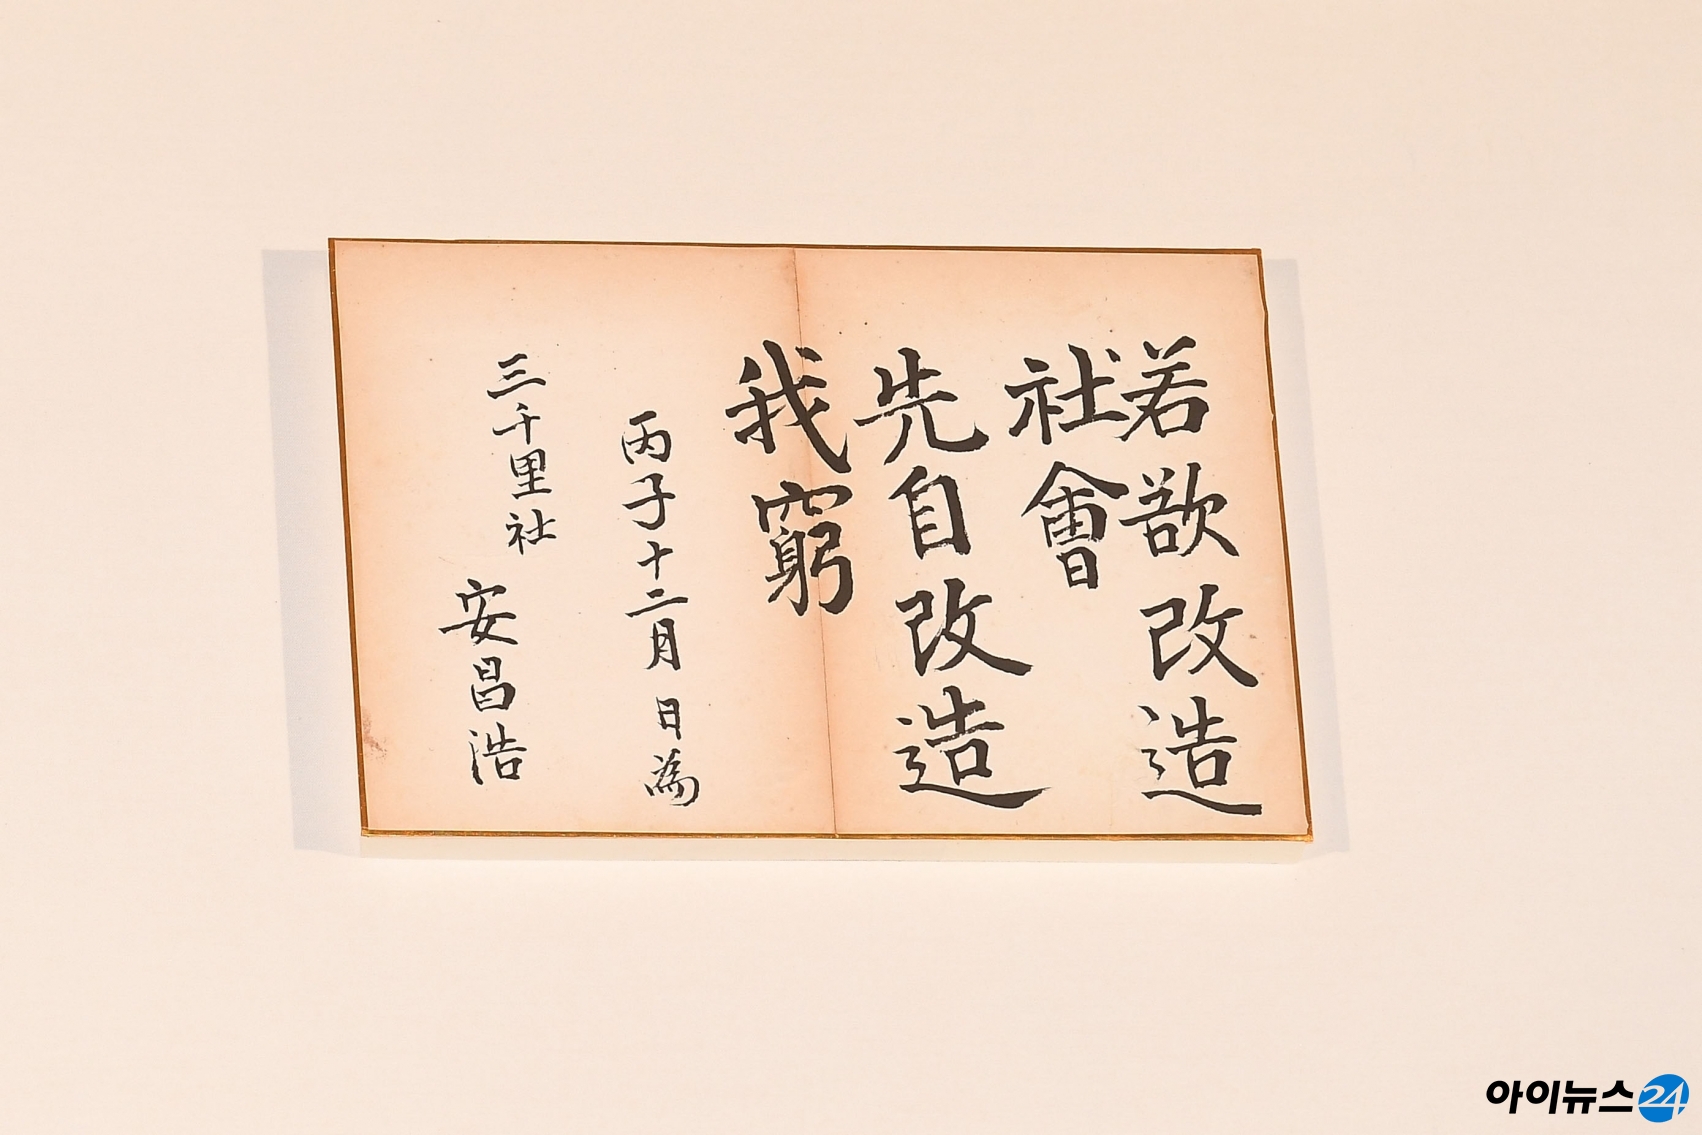 若欲改造
社會
先自改造
我窮
丙子十二月 日 為
三千里社
安昌浩
아이뉴스24